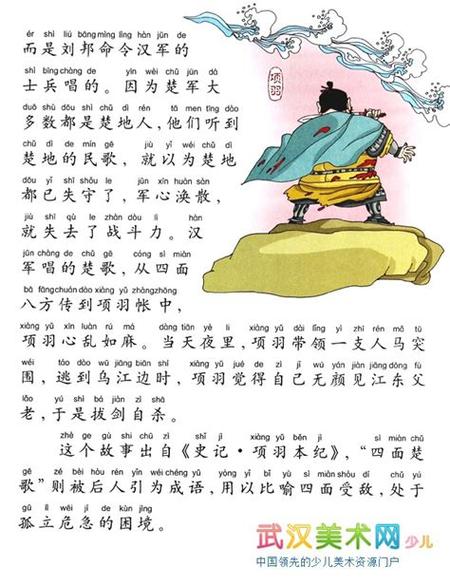 ér shì liú bāng mìng lìng hàn jūn de
而是刘邦命令汉军的
shì bīng chàng de yīn wèi chǔ jūn dà
士兵唱的。因为楚军大
duō shù dōu shì chǔ dì rén tā men tīng dào
多数都是楚地人，他们听到
chǔ dì de mín gē jiù yǐ wéi chǔ dì
楚地的民歌，就以为楚地
dōu yǐ shī shǒu le jūn xīn huàn sàn
都已失守了，军心涣散，
jiù shī qù le zhàn dòu lì hàn
就失去了战斗力。汉
jūn chàng de chǔ gē cóng sì miàn
军唱的楚歌，从四面
bā fāng chuán dào xiàng yǔ zhàng zhōng
八方传到项羽帐中，
xiàng yǔ xīn luàn rú má dàng tiān yè lǐ xiàng yǔ dài lǐng yì zhī rén mǎ tū
项羽心乱如麻。当天夜里，项羽带领一支人马突
wéi táo dào wū jiāng biān shí xiàng yǔ jué de zì jǐ wú yán jiàn jiāng dōng fù
围，逃到乌江边时，项羽觉得自己无颜见江东父
lǎo yú shì bá jiàn zì shā
老，于是拔剑自杀。
zhè ge gù shi chū zì shǐ jì xiàng yǔ běn jì sì miàn chǔ
这个故事出自《史记·项羽本纪》，“四面楚
gē zé bèi hòu rén yǐn wéi chéng yǔ yòng yǐ bǐ yù sì miàn shòu dí chǔ yú
歌”则被后人引为成语，用以比喻四面受敌，处于
gū lì wēi jí de kùn jìng
孤立危急的困境。
项羽
武汉美术网少儿
中国领先的少儿美术资源门户